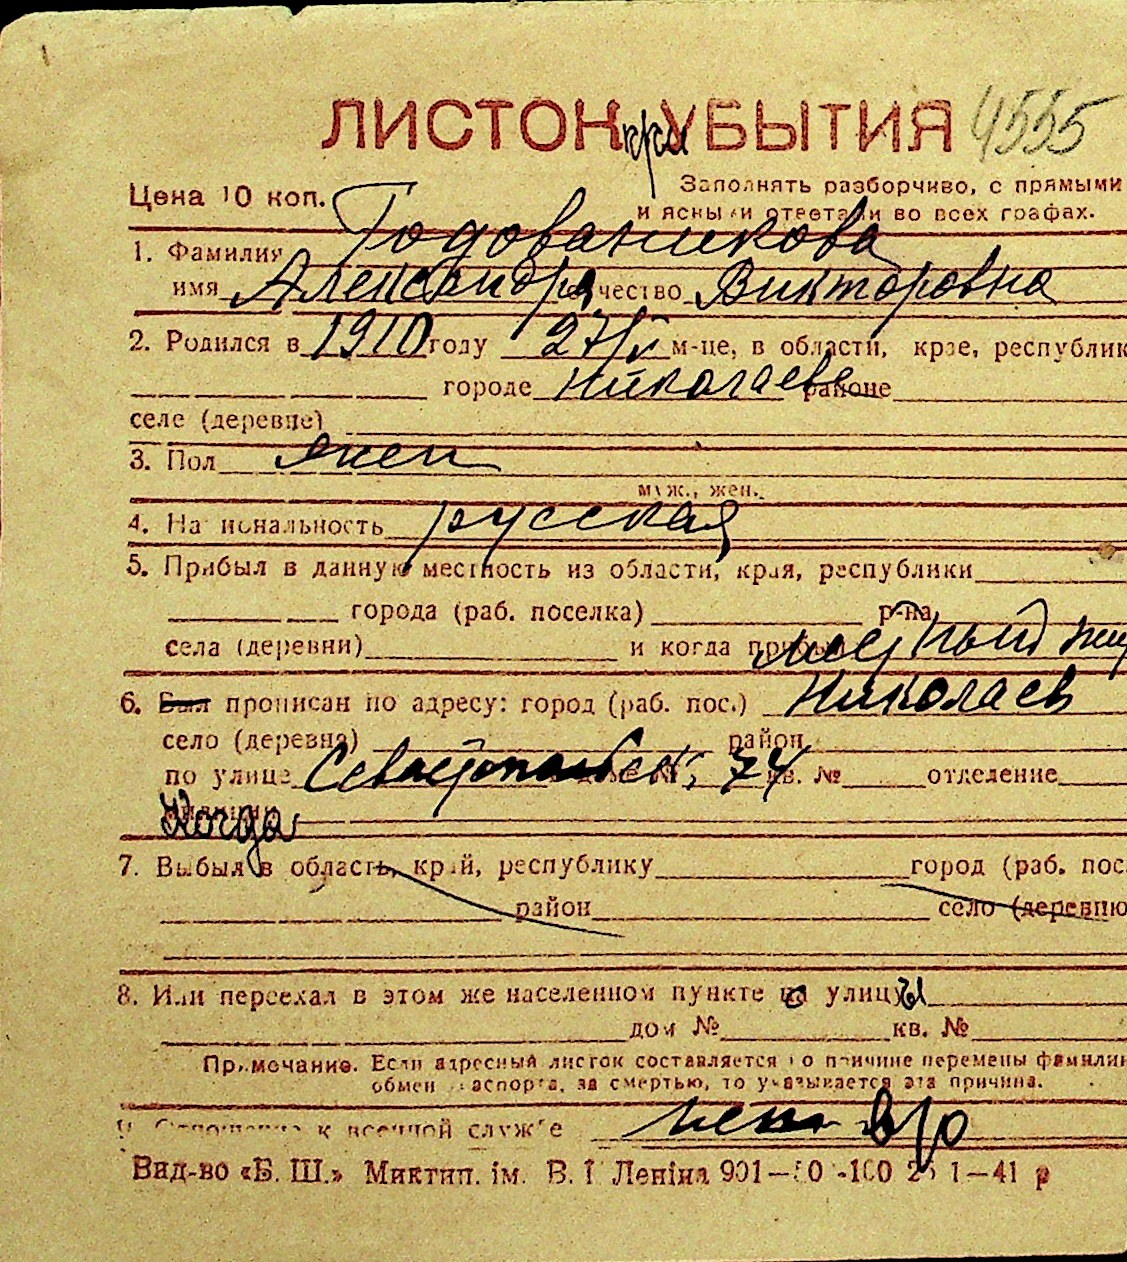 ЛИСТОК при УБЫТИЯ 4555
Цена 10 коп.
Заполнять разборчиво, с прямыми
и ясными ответами во всех графах.
1. Фамилия Годованикова
имя Александра отчество Викторовна
2. Родился в 1910 году 27/V м-це, в области, крае, республик
городе Николаеве районе
селе (деревне)
3. Пол жен
муж., жен.
4. Национальность русская
5. Прибыл в данную местность из области, края, республики
города (раб. поселка) р-на
села (деревни) и когда прибыл местный жи
6. Был прописан по адресу: город (раб. пос.) Николаев
село (деревня) район
по улице Севастопольск; 74 кв. № отделение
Когда
7. Выбыл в область, край, республику город (раб. пос.
район село (деревню
8. Или переехал в этом же населенном пункте с улицы
дом № кв. №
Примечание. Если адресный листок составляется по причине перемены фамилии
обмен паспорта, за смертью, то указывается эта причина.
9. Отношение к военной службе н/о
Вид-во «Б. Ш.» Миктип. ім. В. І Леніна 901—50-100 25 1—41 р